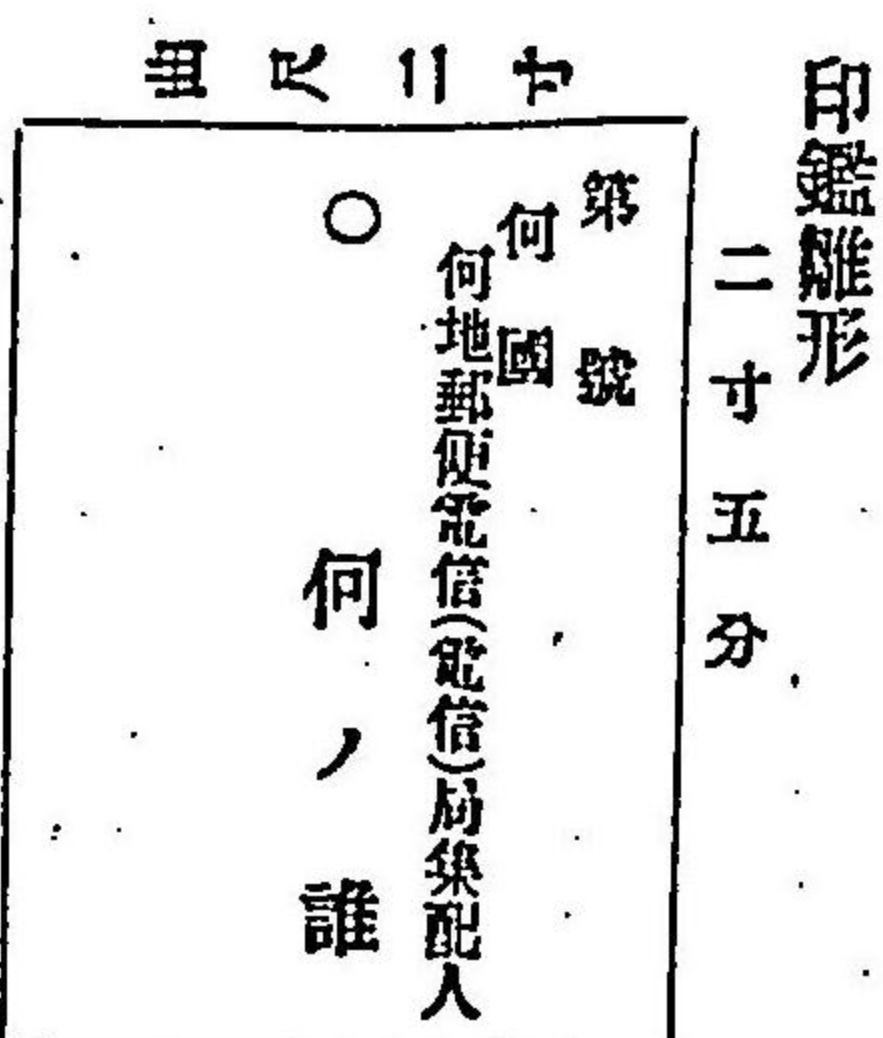 印鑑雛形
二寸五分
曲尺二寸
第號
何國
何地郵便電信(電信)局集配人
○ 何ノ誰